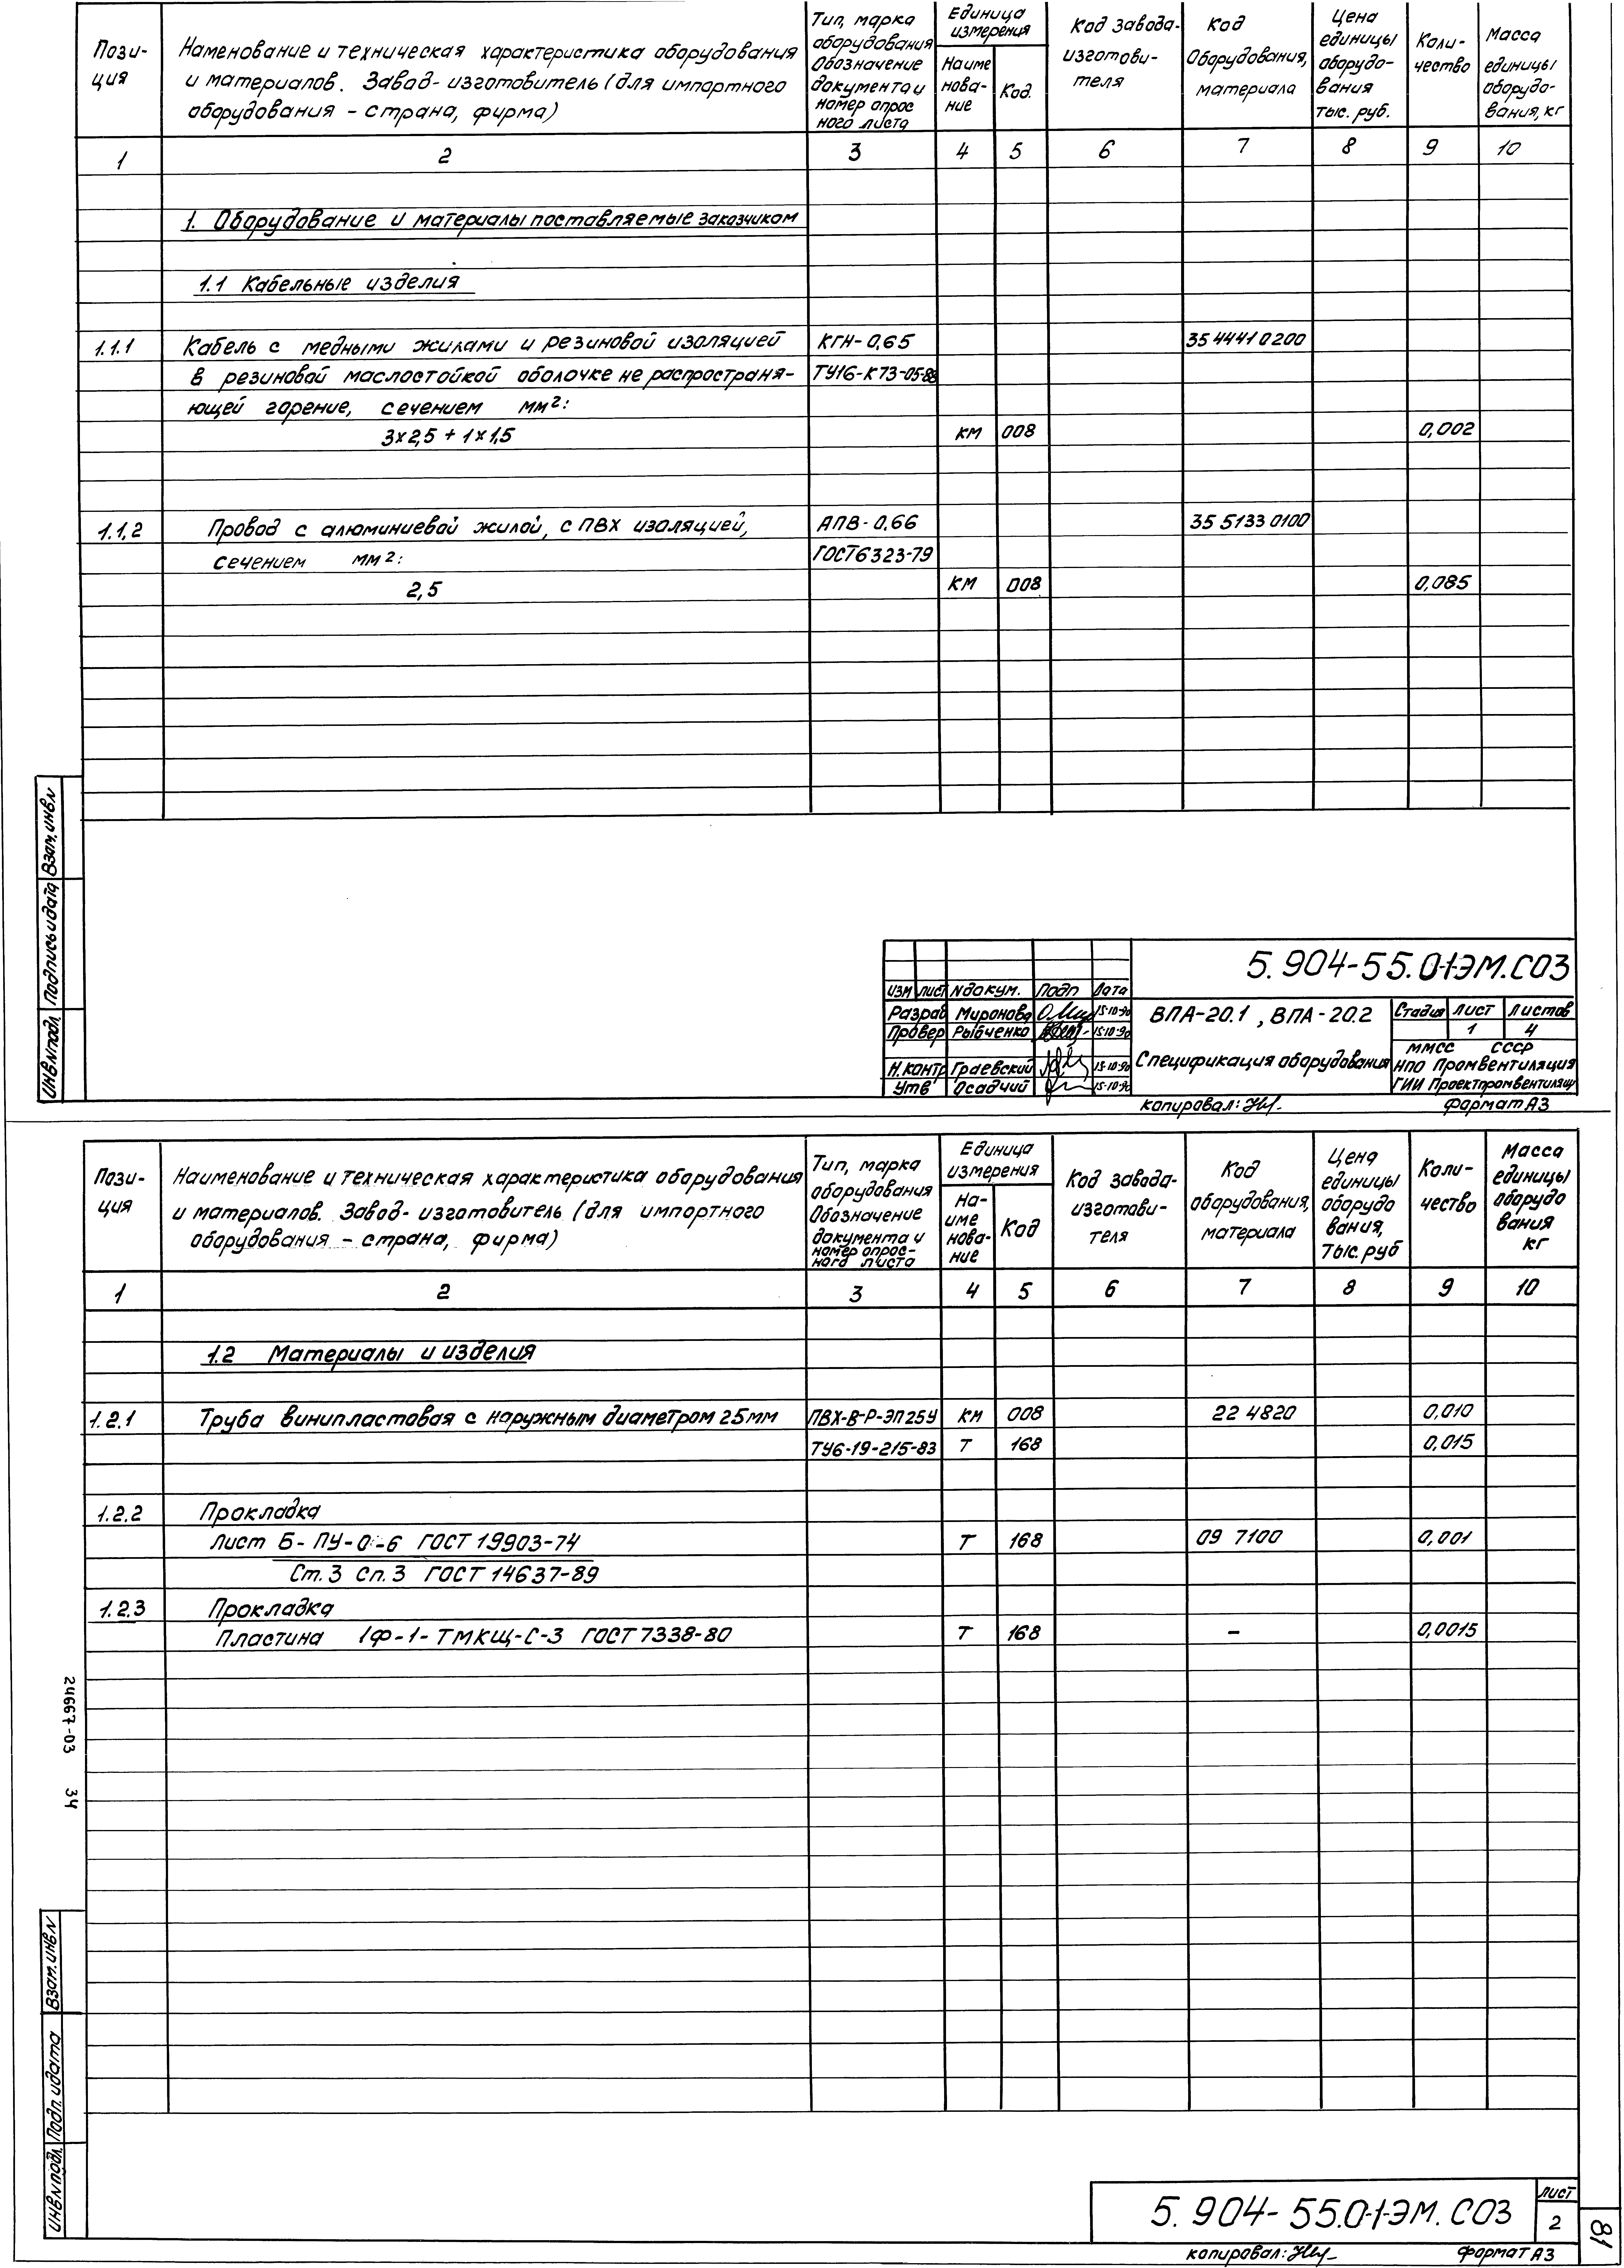 Пози-
ция
Наменование и техническая характеристика оборудования
и материалов. Завод-изготовитель (для импортного
оборудования - страна, фирма)
Тип, марка
оборудования
Обозначение
документа и
номер опрос
ного листа
Единица
измерения
Наиме
нова-
ние
Код.
Код завода-
изготови-
теля
Код
Оборудования,
материала
Цена
единицы
оборудо-
вания
тыс. руб.
Коли-
чество
Масса
единицы
оборудо-
вания, кг
1 2 3 4 5 6 7 8 9 10
1. Оборудование и материалы поставляемые заказчиком
1.1 Кабельные изделия
1.1.1 Кабель с медными жилами и резиновой изоляцией КГН-0,65 35 4441 0200
в резиновой маслостойкой оболочке не распространя- ТУ16-К73-05-88
ющей горение, сечением мм²:
3х2,5 + 1х1,5 км 008 0,002
1.1.2 Провод с алюминиевой жилой, с ПВХ изоляцией, АПВ-0,66 35 5133 0100
сечением мм²: ГОСТ6323-79
2,5 КМ 008 0,085
Взам.инв.N
Подпись и дата
Инв.Nподл.
5.904-55.0-1ЭМ.СО3
изм лист Nдокум. Подп Дата
Разраб Миронова 15.10.90
Провер Рыбченко 15.10.90
Н.контр Граевский 15.10.90
Утв Осадчий 15.10.90
ВПА-20.1, ВПА-20.2
Спецификация оборудования
Стадия Лист Листов
1 4
ММСС СССР
НПО Промвентиляция
ГПИ Проектпромвентиляц
копировал: формат А3
Пози-
ция
Наименование и техническая характеристика оборудования
и материалов. Завод-изготовитель (для импортного
оборудования - страна, фирма)
Тип, марка
оборудования
Обозначение
документа и
номер опрос-
ного листа
Единица
измерения
На-
име
нова-
ние
Код
Код завода-
изготови-
теля
Код
оборудования,
материала
Цена
единицы
оборудо
вания,
тыс. руб
Коли-
чество
Масса
единицы
оборудо
вания
кг
1 2 3 4 5 6 7 8 9 10
1.2 Материалы и изделия
1.2.1 Труба винипластовая с наружным диаметром 25мм ПВХ-В-Р-ЭП25У км 008 22 4820 0,010
ТУ6-19-215-83 Т 168 0,015
1.2.2 Прокладка
Лист Б-ПУ-0-6 ГОСТ 19903-74 Т 168 09 7100 0,001
Ст.3 сп.3 ГОСТ 14637-89
1.2.3 Прокладка
Пластина 1Ф-1-ТМКЩ-С-3 ГОСТ 7338-80 Т 168 - 0,0015
24667-03 34
Взам.инв.N
Подп. и дата
Инв.Nподл.
5.904-55.0-1-ЭМ.СО3
лист
2
81
копировал: формат А3